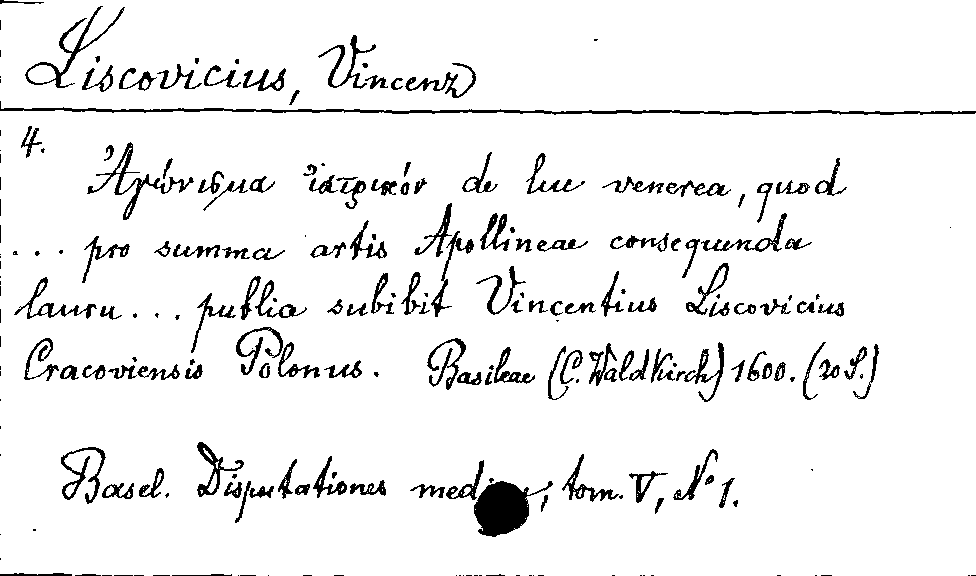 Liscovicius, Vincenz
4.
Ἀγώνισμα ἰατρικόν de lue venerea, quod
... pro summa artis Apollineae consequenda
lauru... publia subibit Vincentius Liscovicius
Cracoviensis Polonus. Basileae (C. Waldkirch) 1600. (20 S.)
Basel. Disputationes tom. V, No 1.